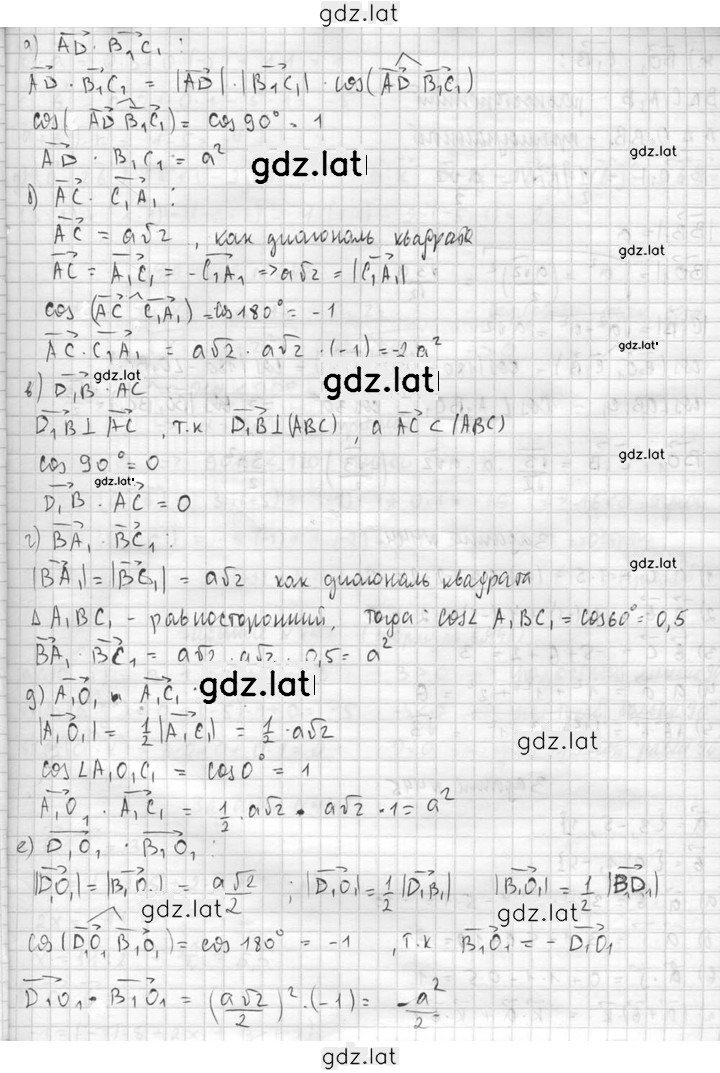 gdz.lat
а) AD · B₁C₁ :
AD · B₁C₁ = |AD| · |B₁C₁| · cos(AD B₁C₁)
cos( AD B₁C₁) = cos 90° = 1
gdz.lat
AD · B₁C₁ = a²
gdz.lat
б) AC · C₁A₁ :
AC = a√2 , как диагональ квадрата
gdz.lat
AC = A₁C₁ = -C₁A₁ => a√2 = |C₁A₁|
cos (AC C₁A₁) = cos 180° = -1
AC · C₁A₁ = a√2 · a√2 · (-1) = -2a²
gdz.lat
gdz.lat
в) D₁B · AC
gdz.lat
D₁B ⊥ AC , т.к D₁B ⊥ (ABC) , а AC ⊂ (ABC)
cos 90° = 0
gdz.lat
gdz.lat
D₁B · AC = 0
г) BA₁ · BC₁ :
gdz.lat
|BA₁| = |BC₁| = a√2 как диагональ квадрата
Δ A₁BC₁ - равносторонний, тогда: cos∠ A₁BC₁ = cos 60° = 0,5
BA₁ · BC₁ = a√2 · a√2 · 0,5 = a²
д) A₁O₁ и A₁C₁
gdz.lat
|A₁O₁| = 1/2 |A₁C₁| = 1/2 · a√2
gdz.lat
cos∠A₁O₁C₁ = cos 0° = 1
A₁O₁ · A₁C₁ = 1/2 · a√2 · a√2 · 1 = a²
е) D₁O₁ · B₁O₁ :
|D₁O₁| = |B₁O₁| = a√2/2 ; |D₁O₁| = 1/2 |D₁B₁| |B₁O₁| = 1/2 |B₁D₁|
gdz.lat
gdz.lat
cos(D₁O₁ B₁O₁) = cos 180° = -1 , т.к B₁O₁ = - D₁O₁
D₁O₁ · B₁O₁ = (a√2/2)² · (-1) = -a²/2
gdz.lat